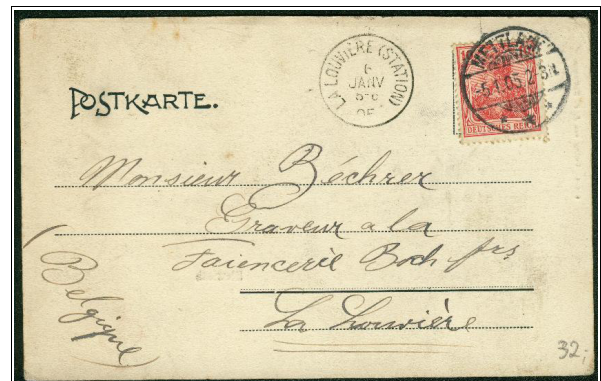 POSTKARTE.
LA LOUVIÈRE (STATION)
6
JANV
METTLACH
DEUTSCHES REICH
Monsieur Béchrer
Graveur a la
Faiencerie Boch frs
La Louvière
(Belgique)
32,